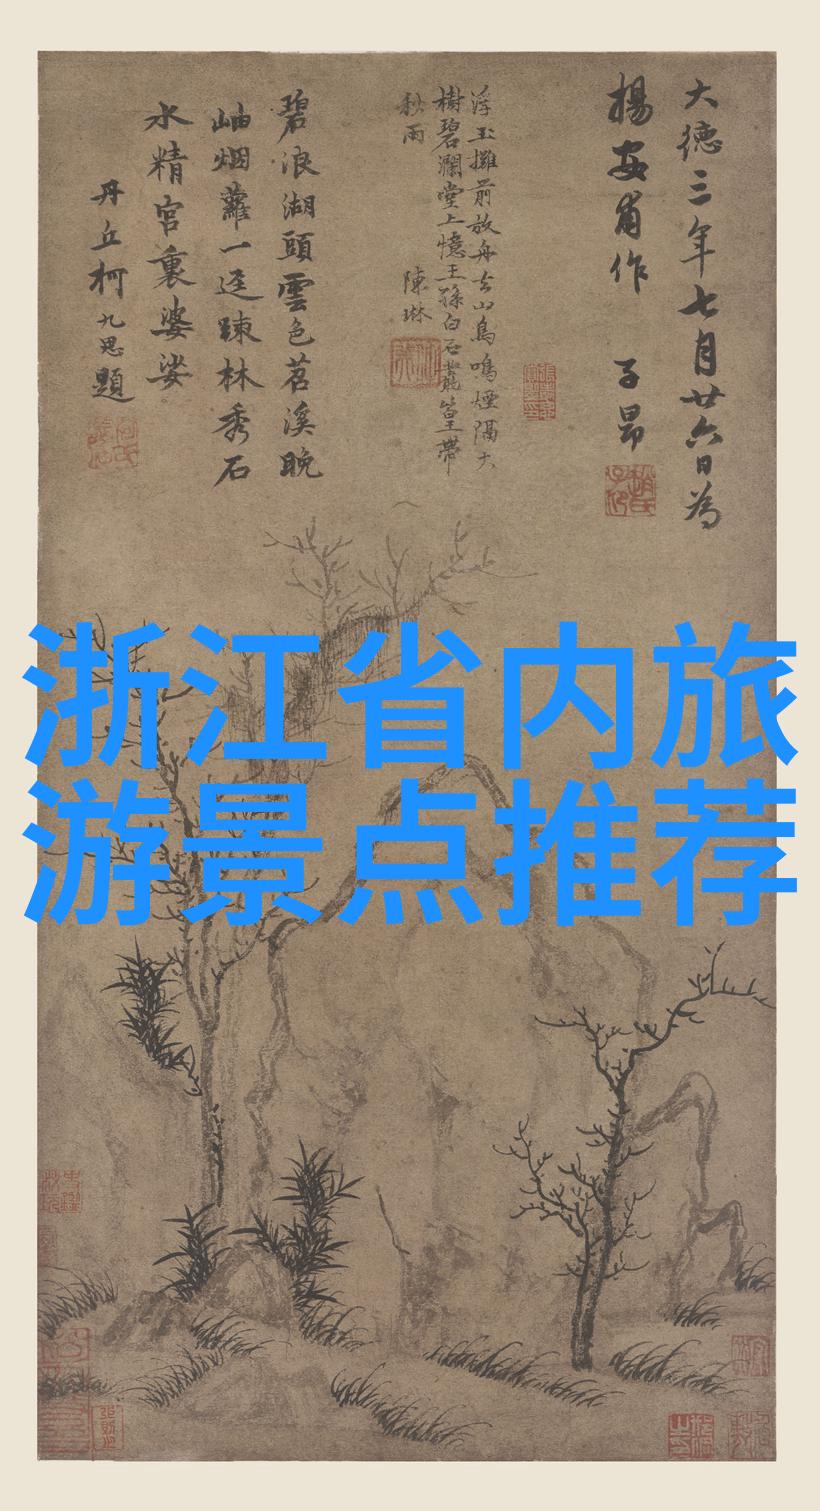 大德三年七月廿六日為
楊安甫作 子昂
浮玉攤前放舟去山鳥鳴煙隔大
樹碧瀾堂上憶王孫白石叢篁帶
秋雨 陳琳
碧浪湖頭雲色苕溪晚
岫烟蘿一逕踈林秀石
水精宮裏婆娑
丹丘柯九思題
浙江省内旅
游景点推荐